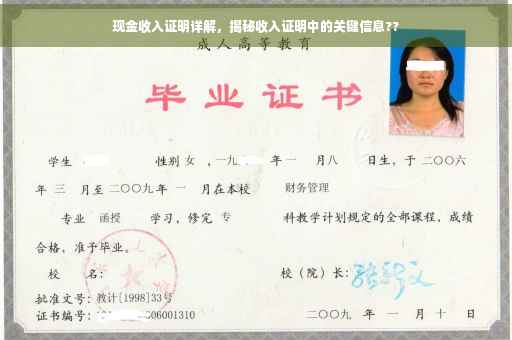 现金收入证明详解，揭秘收入证明中的关键信息??
成人高等教育
毕业证书
学生 性别 女 ，一九 年一 月八 日生，于二〇〇六
年 三 月至二〇〇九年 一 月在本校 财务管理
专业 函授 学习，修完 专 科教学计划规定的全部课程，成绩
合格，准予毕业。
校 名： 校（院）长：
批准文号：教计[1998]33号
证书编号： 06001310 二〇〇九 年 一 月 十 日